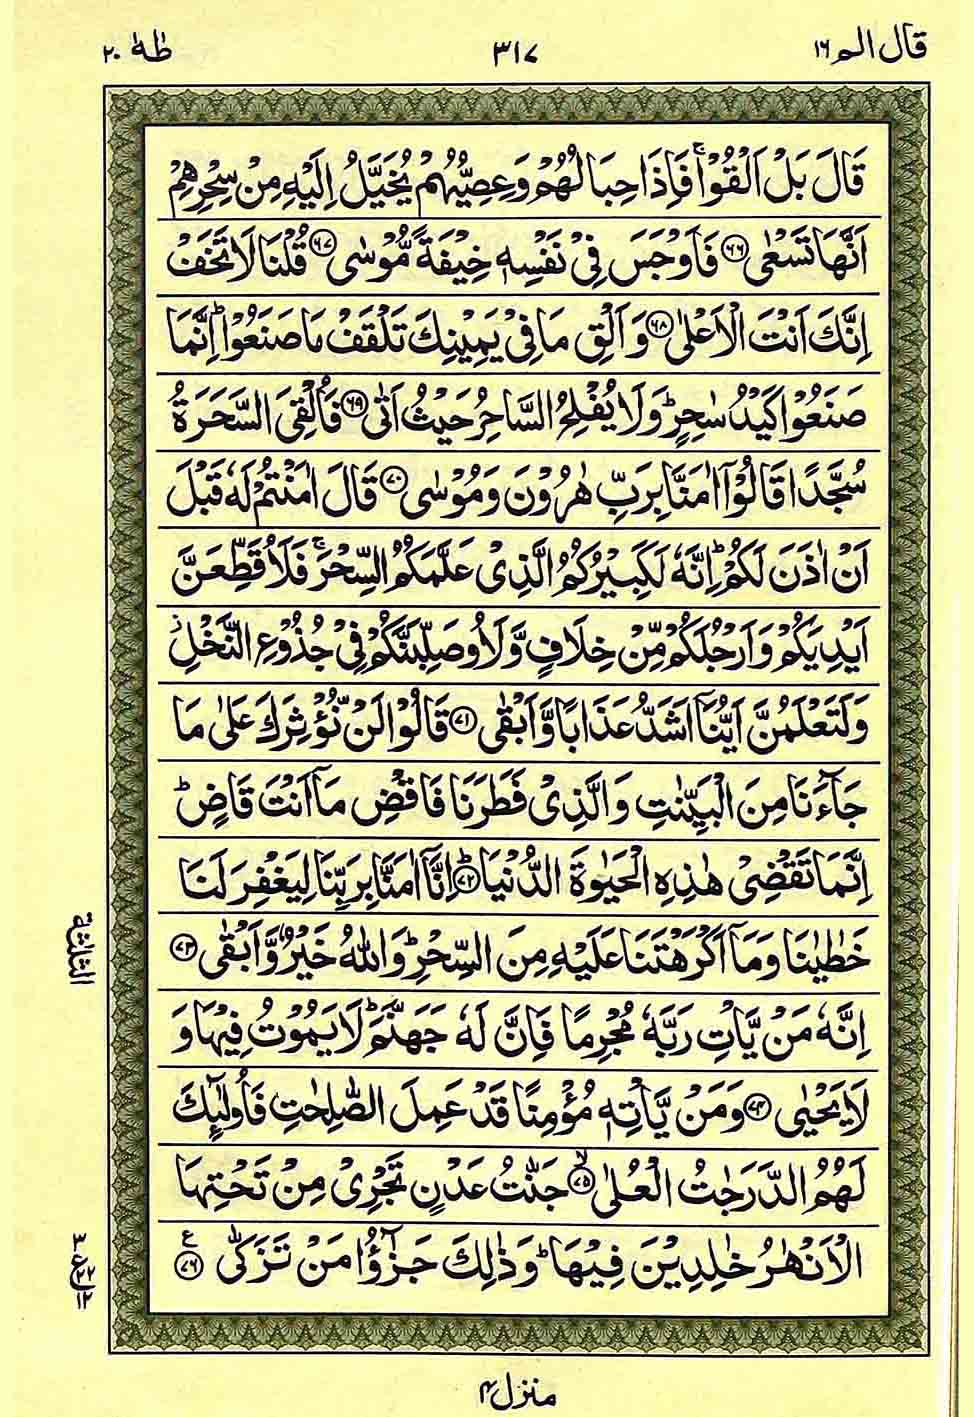 قال الم ١٦
٣١٧
طٰهٰ ٢٠
قَالَ بَلْ اَلْقُوْا ۚ فَاِذَا حِبَالُهُمْ وَعِصِيُّهُمْ يُخَيَّلُ اِلَيْهِ مِنْ سِحْرِهِمْ
اَنَّهَا تَسْعٰى ﴿٦٦﴾ فَاَوْجَسَ فِيْ نَفْسِهٖ خِيْفَةً مُّوْسٰى ﴿٦٧﴾ قُلْنَا لَا تَخَفْ
اِنَّكَ اَنْتَ الْاَعْلٰى ﴿٦٨﴾ وَاَلْقِ مَا فِيْ يَمِيْنِكَ تَلْقَفْ مَا صَنَعُوْا ؕ اِنَّمَا
صَنَعُوْا كَيْدُ سٰحِرٍ ؕ وَلَا يُفْلِحُ السَّاحِرُ حَيْثُ اَتٰى ﴿٦٩﴾ فَاُلْقِيَ السَّحَرَةُ
سُجَّدًا قَالُوْۤا اٰمَنَّا بِرَبِّ هٰرُوْنَ وَمُوْسٰى ﴿٧٠﴾ قَالَ اٰمَنْتُمْ لَهٗ قَبْلَ
اَنْ اٰذَنَ لَكُمْ ؕ اِنَّهٗ لَكَبِيْرُكُمُ الَّذِيْ عَلَّمَكُمُ السِّحْرَ ۚ فَلَاُقَطِّعَنَّ
اَيْدِيَكُمْ وَاَرْجُلَكُمْ مِّنْ خِلَافٍ وَّلَاُوصَلِّبَنَّكُمْ فِيْ جُذُوْعِ النَّخْلِ ؗ
وَلَتَعْلَمُنَّ اَيُّنَاۤ اَشَدُّ عَذَابًا وَّاَبْقٰى ﴿٧١﴾ قَالُوْا لَنْ نُّؤْثِرَكَ عَلٰى مَا
جَآءَنَا مِنَ الْبَيِّنٰتِ وَالَّذِيْ فَطَرَنَا فَاقْضِ مَاۤ اَنْتَ قَاضٍ ؕ
اِنَّمَا تَقْضِيْ هٰذِهِ الْحَيٰوةَ الدُّنْيَا ؕ﴿٧٢﴾ اِنَّاۤ اٰمَنَّا بِرَبِّنَا لِيَغْفِرَ لَنَا
خَطٰيٰنَا وَمَاۤ اَكْرَهْتَنَا عَلَيْهِ مِنَ السِّحْرِ ؕ وَاللّٰهُ خَيْرٌ وَّاَبْقٰى ﴿٧٣﴾
اِنَّهٗ مَنْ يَّاْتِ رَبَّهٗ مُجْرِمًا فَاِنَّ لَهٗ جَهَنَّمَ ؕ لَا يَمُوْتُ فِيْهَا وَ
لَا يَحْيٰى ﴿٧٤﴾ وَمَنْ يَّاْتِهٖ مُؤْمِنًا قَدْ عَمِلَ الصّٰلِحٰتِ فَاُولٰٓئِكَ
لَهُمُ الدَّرَجٰتُ الْعُلٰى ۙ﴿٧٥﴾ جَنّٰتُ عَدْنٍ تَجْرِيْ مِنْ تَحْتِهَا
الْاَنْهٰرُ خٰلِدِيْنَ فِيْهَا ؕ وَذٰلِكَ جَزٰٓؤُا مَنْ تَزَكّٰى ﴿٧٦﴾ ع
الثلثة
٣ ع ١٢
منزل ٤